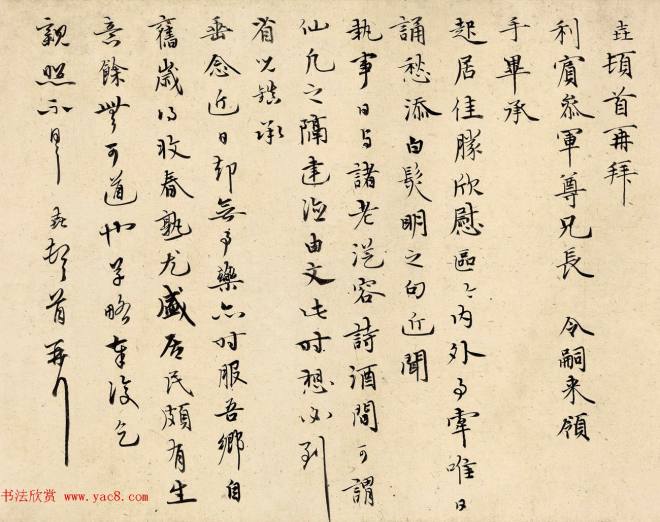 垚頓首再拜
利賓叅軍尊兄長 令嗣来領
手畢承
起居佳勝欣慰區〻内外事霏唯日
誦愁添白髮明之句近聞
執事日與諸老從容詩酒間可謂
仙凡之隔建德由文時想必到
省以鎮承
垂念近日却無事藥亦时服吾鄉自
舊歲得收春熟尤盛居民頗有生
意餘無可道也草略奉復乞
親照不具 垚頓首再拜
书法欣赏 www.yac8.com